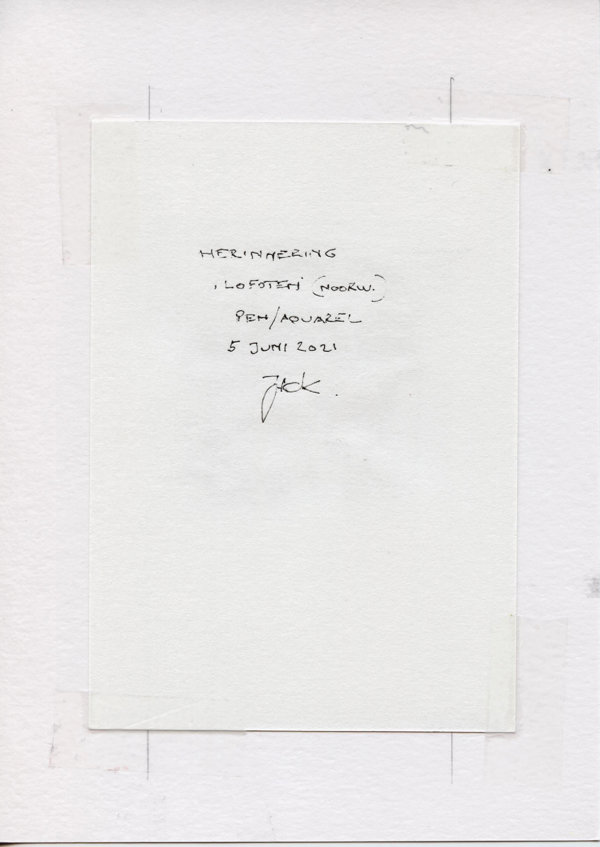 HERINNERING
'LOFOTEN' (NOORW.)
PEN/AQUAREL
5 JUNI 2021
Jack.